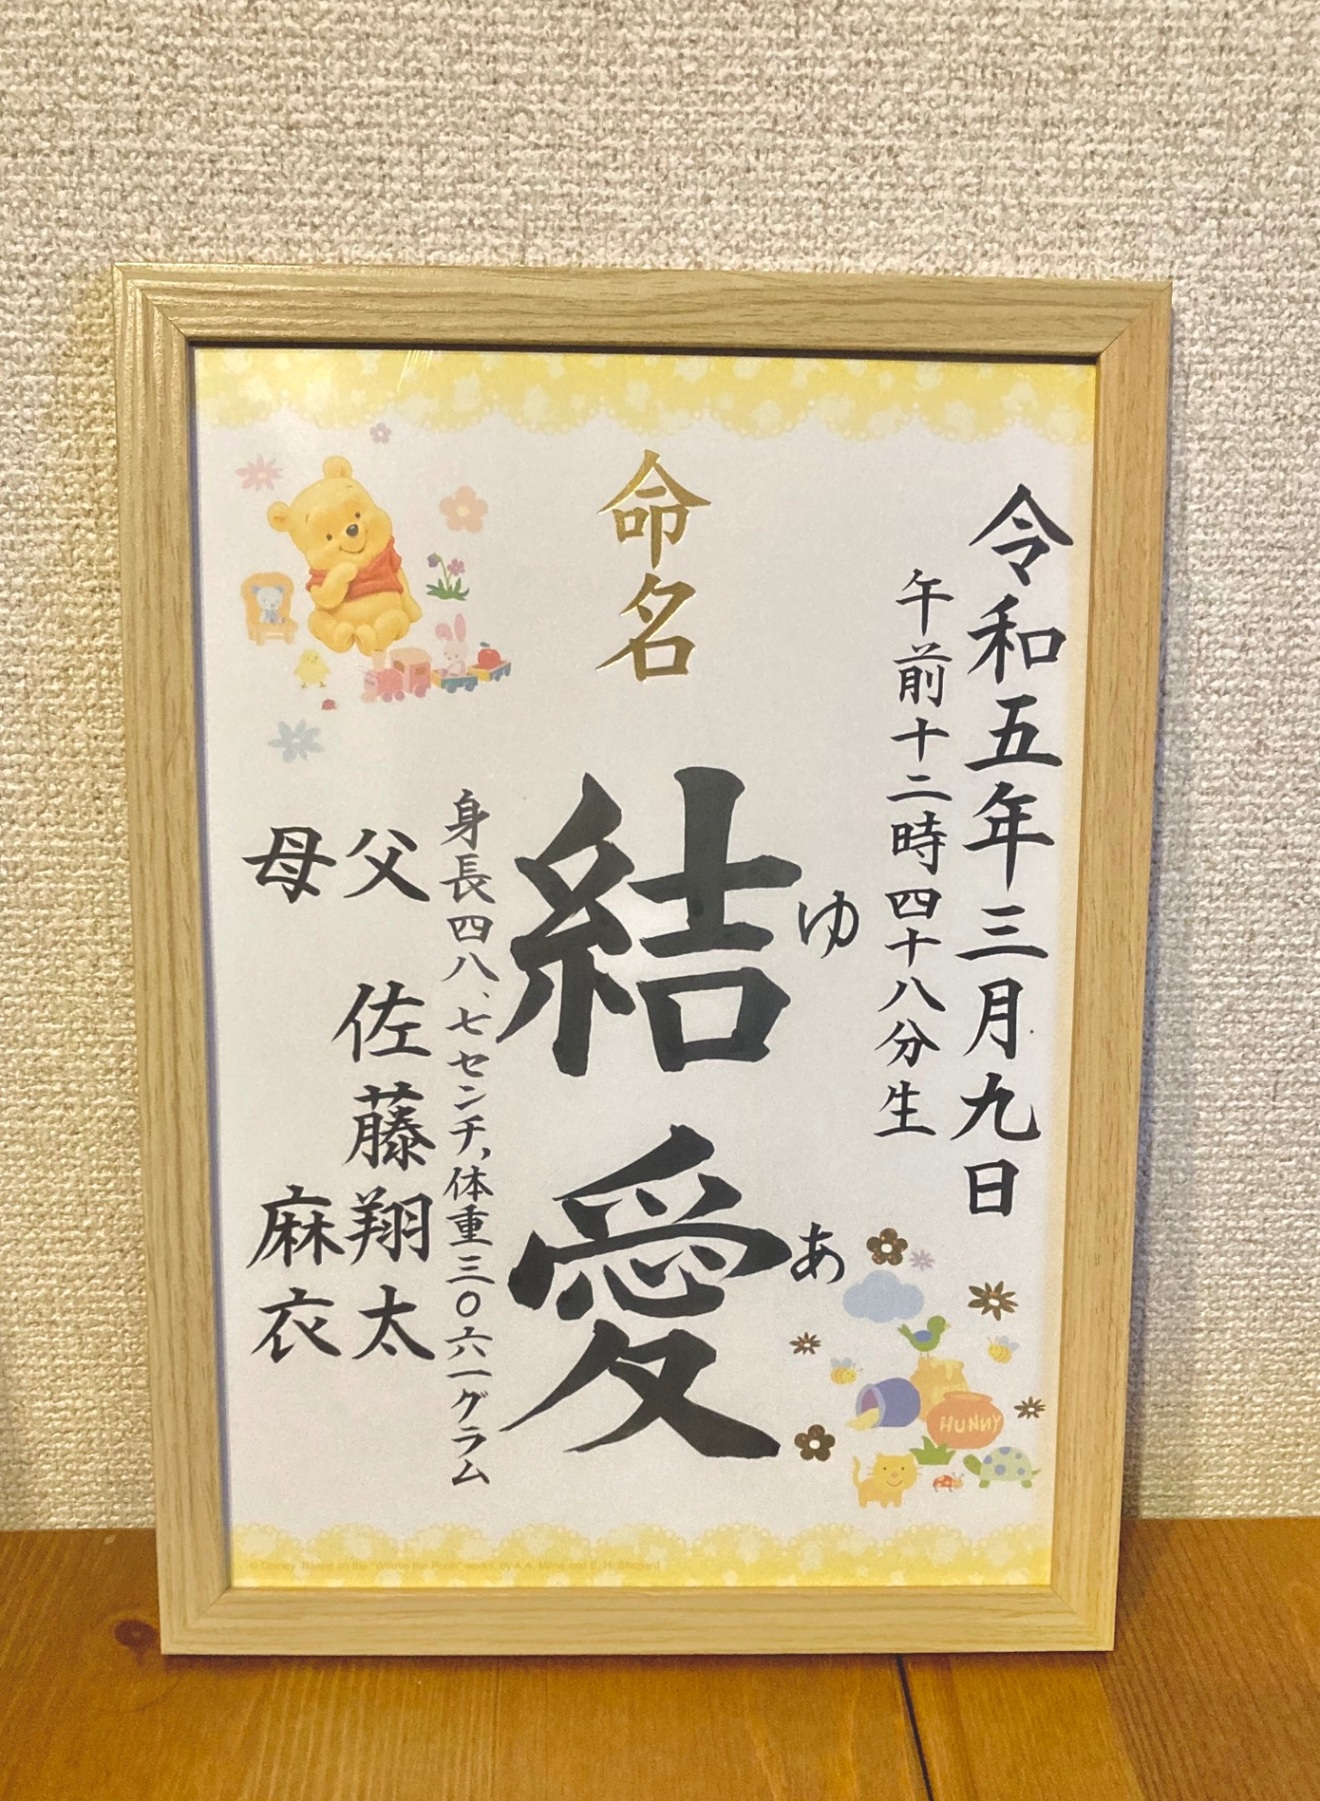 令和五年三月九日
午前十二時四十八分生
命名
結愛
ゆ
あ
身長四八、七センチ、体重三〇六一グラム
父 佐藤翔太
母 麻衣
HUNNY
© Disney. Based on the "Winnie the Pooh" works by A.A. Milne and E. H. Shepard